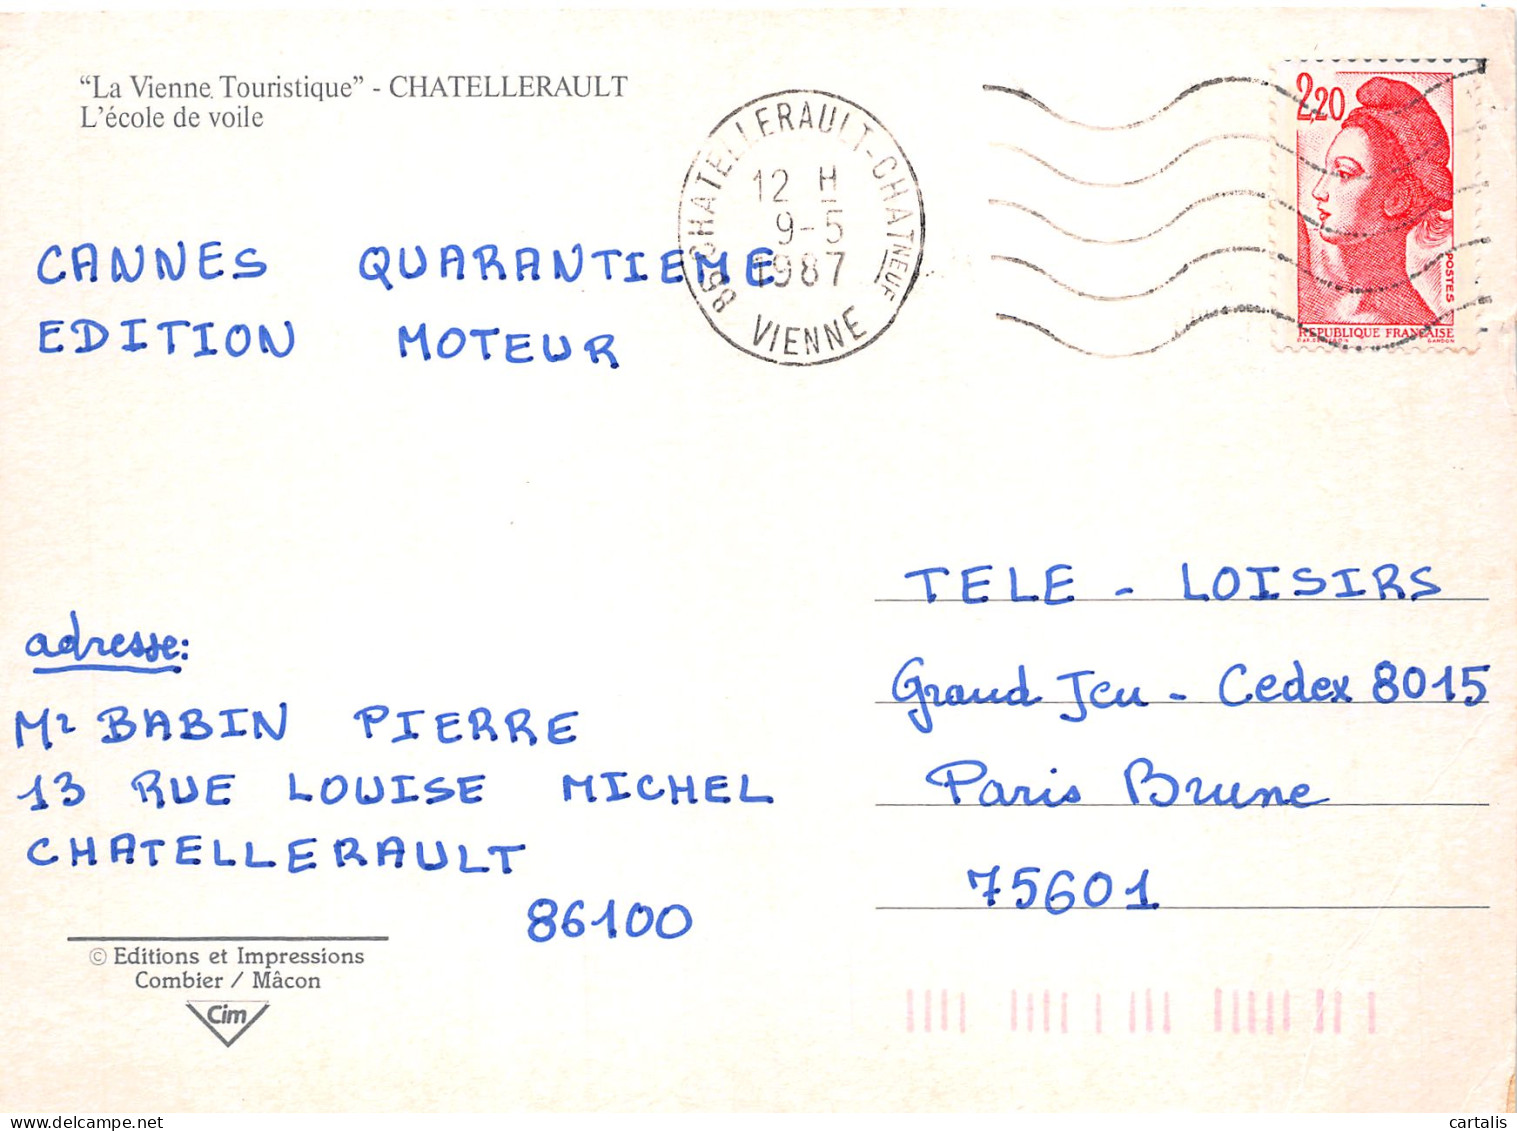 “La Vienne Touristique” - CHATELLERAULT
L’école de voile
86 CHATELLERAULT-CHATNEUF
12 H
9-5
1987
VIENNE
2,20
POSTES
REPUBLIQUE FRANÇAISE
GANDON
CANNES QUARANTIEME
EDITION MOTEUR
TELE - LOISIRS
Grand Jeu - Cedex 8015
Paris Brune
75601
adresse:
Mr BABIN PIERRE
13 RUE LOUISE MICHEL
CHATELLERAULT
86100
© Editions et Impressions
Combier / Mâcon
Cim
cartalis